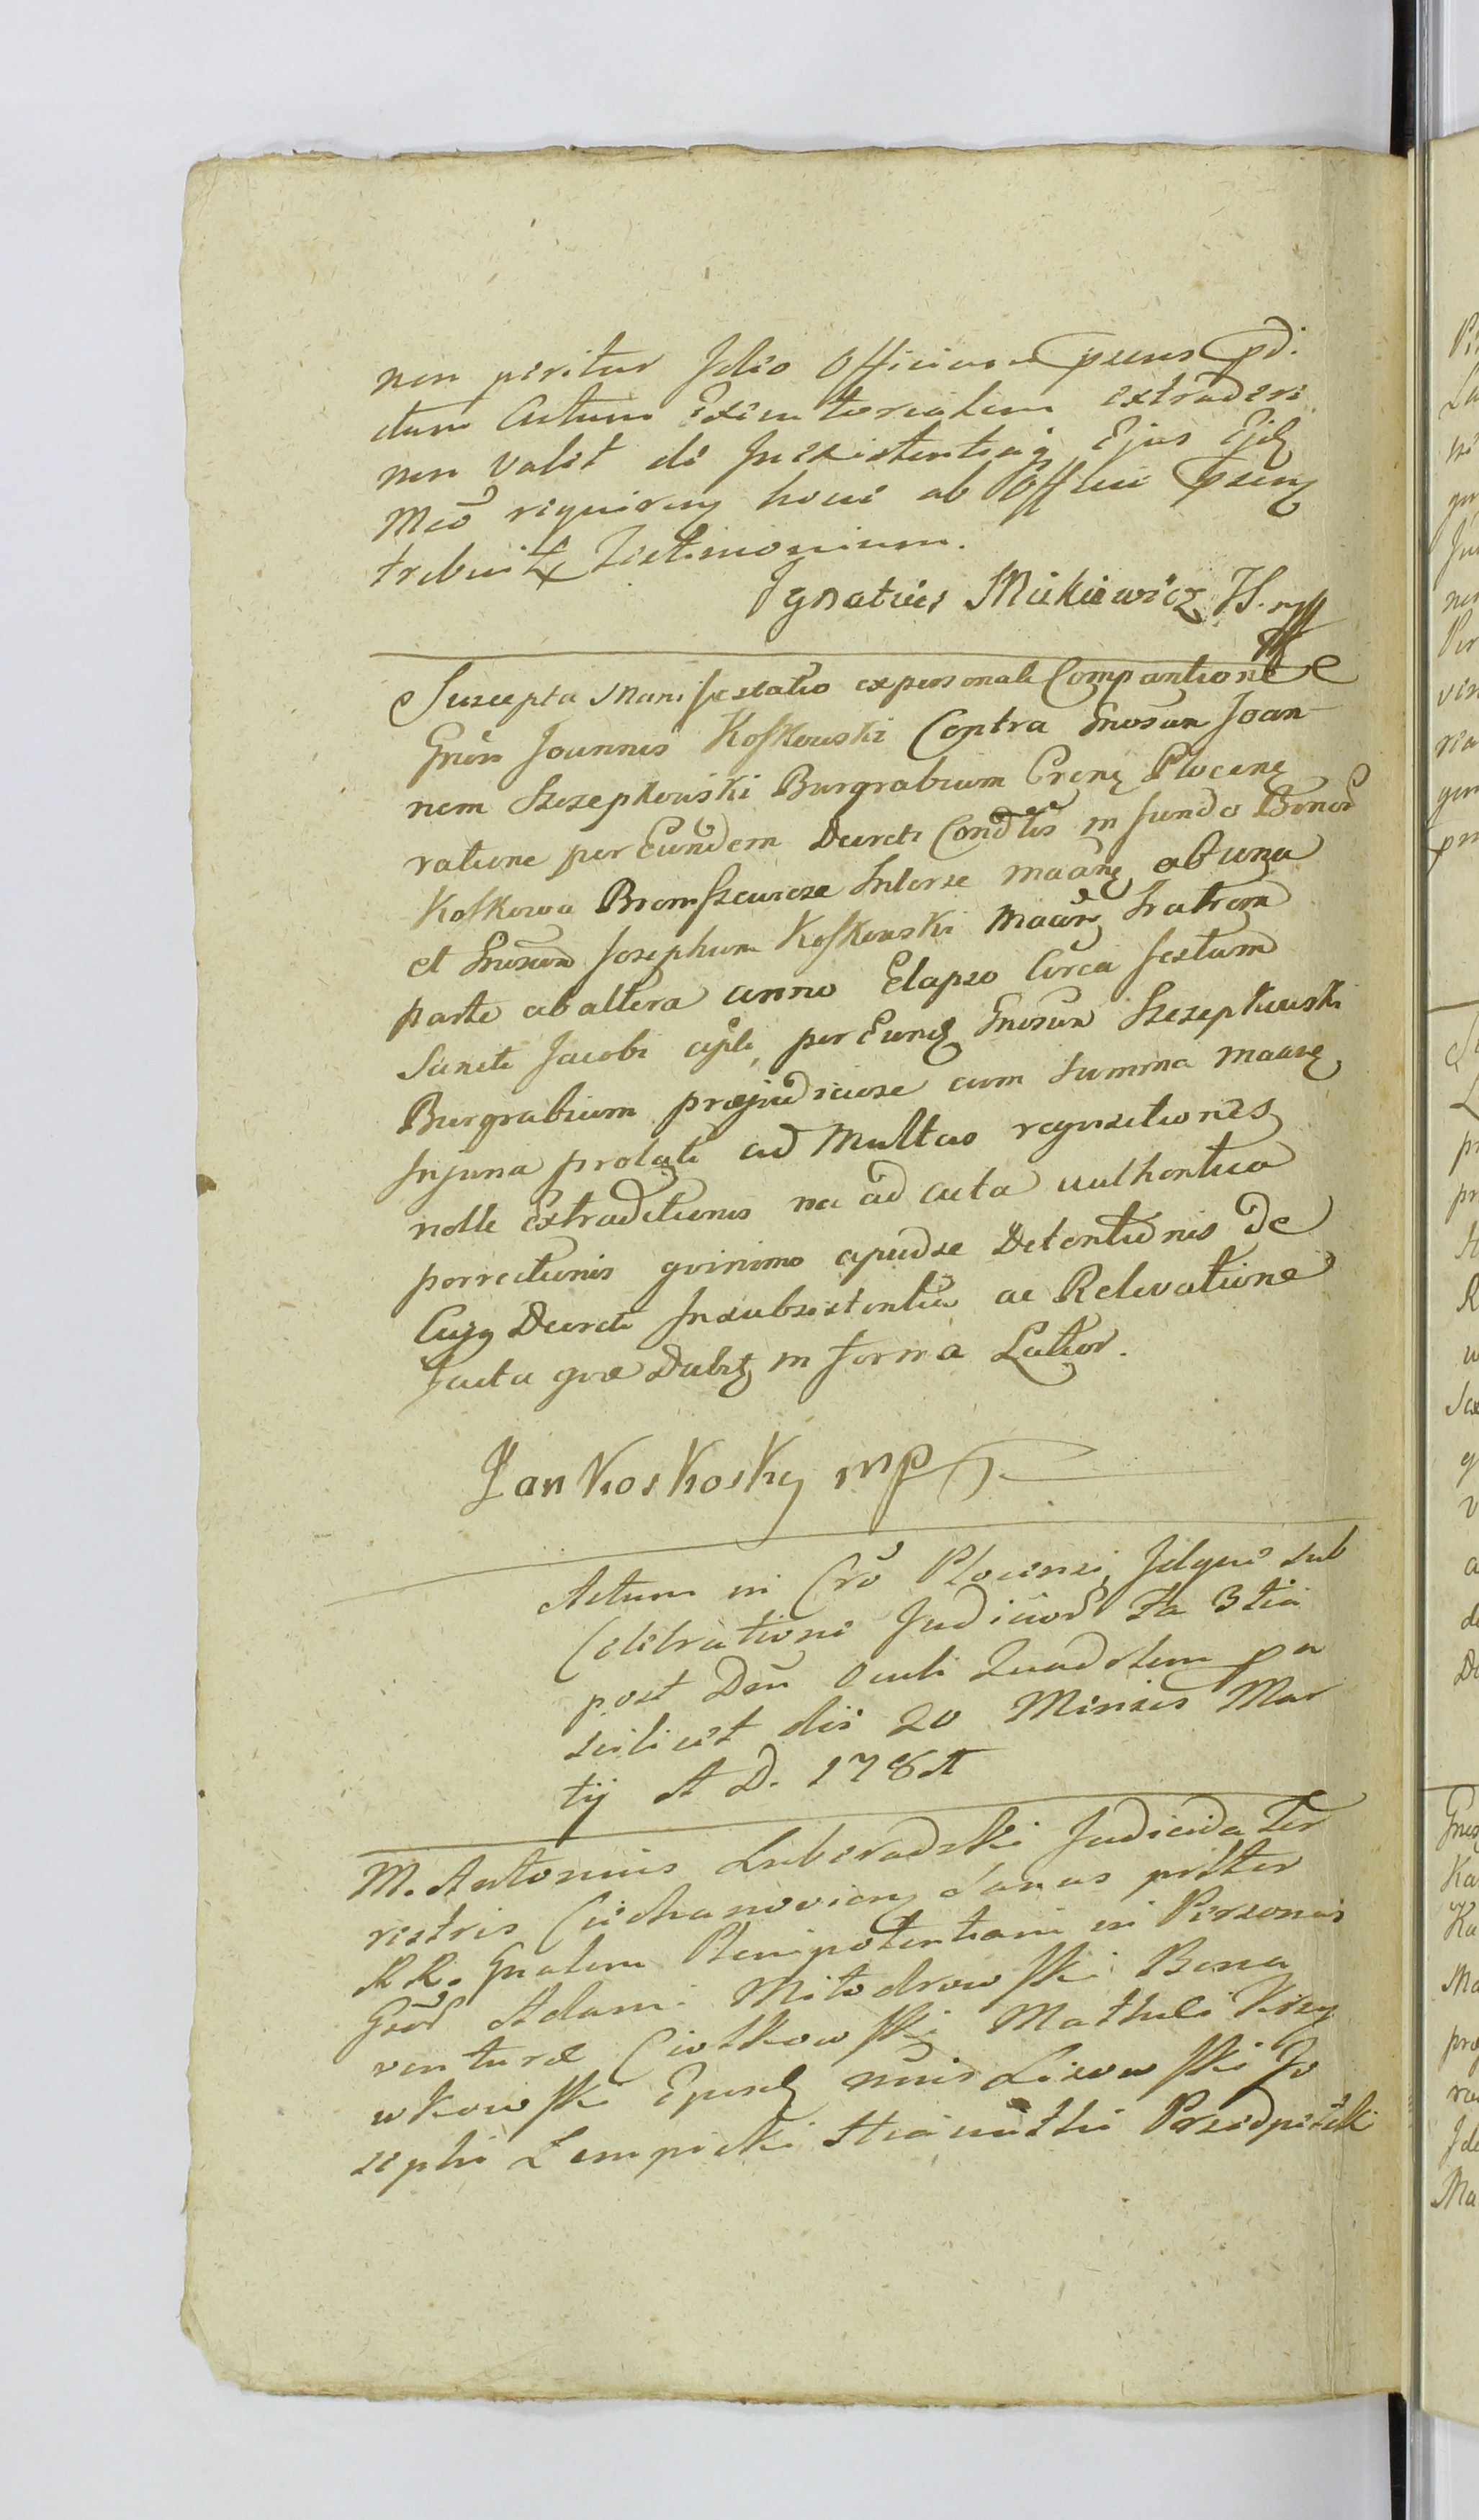 non peritur Ideo Officium psens pd.
ctum Actum Exemtorialem extradere
non valet de Inexistentiaq Ejus Ejd
Mco requireng hocce ab Officii Pseng
tribuit Testimonium.
Ignatius Mickiewicz JS. mp
Suscepta Manifestatio ex personali Comparitione
Gnēsi Joannis Koskowski Contra Gnosum Joan-
nem Szczepkowski Burgrabium Crenę Plocenę
ratione per Eundem Decreti Condtis in fundo Bonor
Koskowo Bromiszewicze Inter se maang ab una
et Gnosum Josephum Koskowski Maang Fratrem
parte ab altera anno Elapso Circa festum
Sancti Jacobi apli, per Eund Gnosum Szczepkowski
Burgrabium præjudiciose cum summa maang
Injuria prolati ad Multas requisitiones
nolle Extraditionis nec ad acta authentica
porrectionis qvinimo apud se Detentionis De
Cujg Decreti Insubsistentia ac Relevatione
facta qvæ Dabit in forma Latior.
Jan Koskosky mp
Actum in Crō Plocensi, Idque sub
Celebratione Judicior Fa 3tia
post Dēm Oculi Quadslem pn
scilicet die 20 Mensis Mar
tij A D. 178
M. Antonius Luberadzki Judicida Ter
restris Ciechanovieng Danus prltter
R R. Gnalem Plenipotentiam in Personas
Gsōr Adami Mitodrowski Bona
venturæ Ciotkowski Mathæi Krzy
wkowski Epusd nuis Lisowski Jo
sephi Lempicki Przedpełski